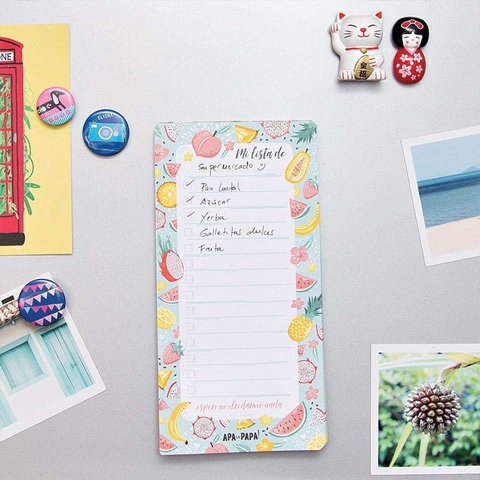 ONE
Mi lista de
Supermercado
Pan lactal
Azúcar
Yerba
Galletitas dulces
Fruta
espero no olvidarme nada
APA LA PAPA!